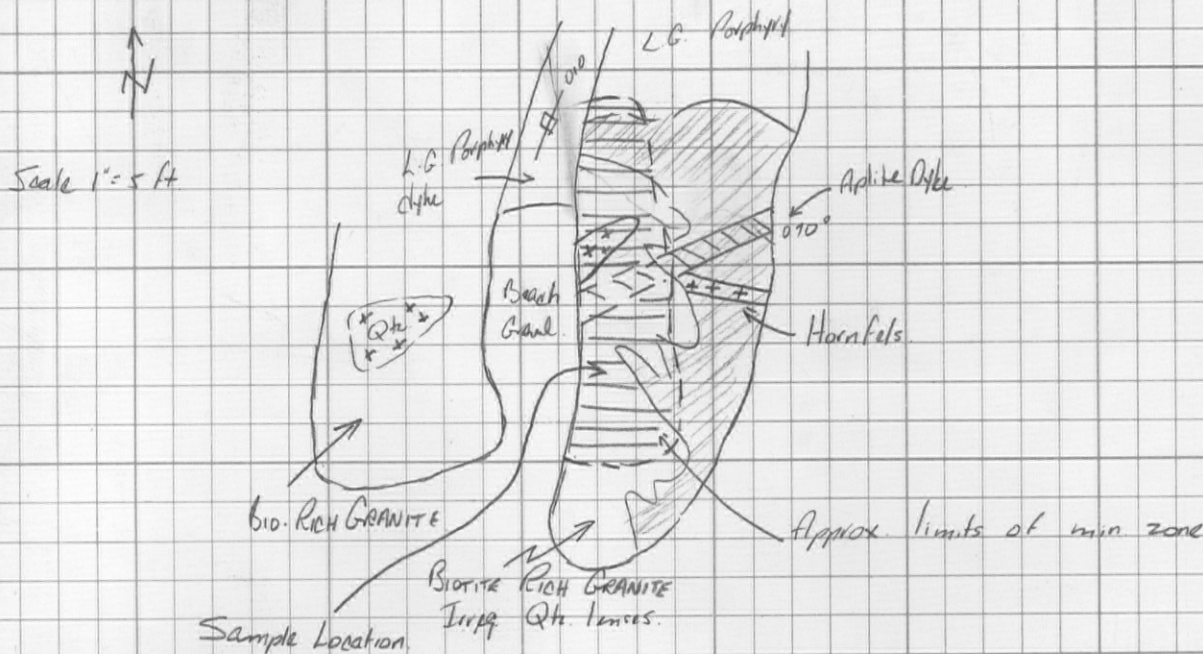 N
L.G. Porphyry
010
L.G. Porphyry
dyke
Scale 1" = 5 ft
Aplite Dyke
070°
Beach
Gravel.
Qtz
Hornfels.
BIO. RICH GRANITE
Approx. limits of min. zone
BIOTITE RICH GRANITE
Irreg. Qtz. lenses.
Sample Location.